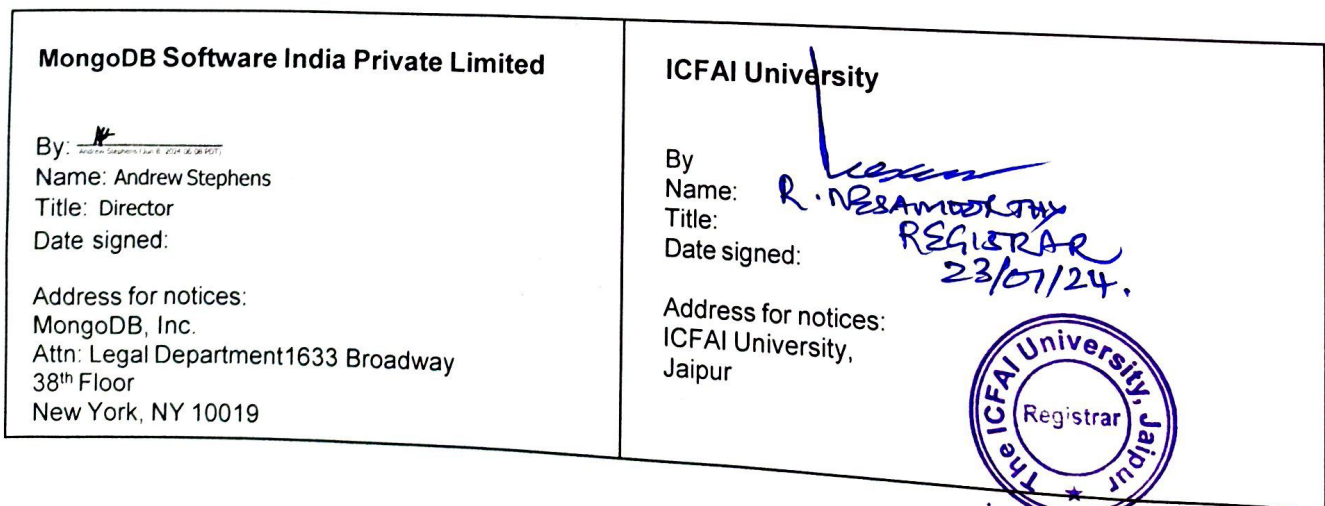 MongoDB Software India Private Limited
By:
Andrew Stephens (Jun 6, 2024 06:08 PDT)
Name: Andrew Stephens
Title: Director
Date signed:
Address for notices:
MongoDB, Inc.
Attn: Legal Department1633 Broadway
38th Floor
New York, NY 10019
ICFAI University
By
Name: R. NESAMOORTHY
Title: REGISTRAR
Date signed: 23/07/24.
Address for notices:
ICFAI University,
Jaipur
The ICFAI University, Jaipur
Registrar